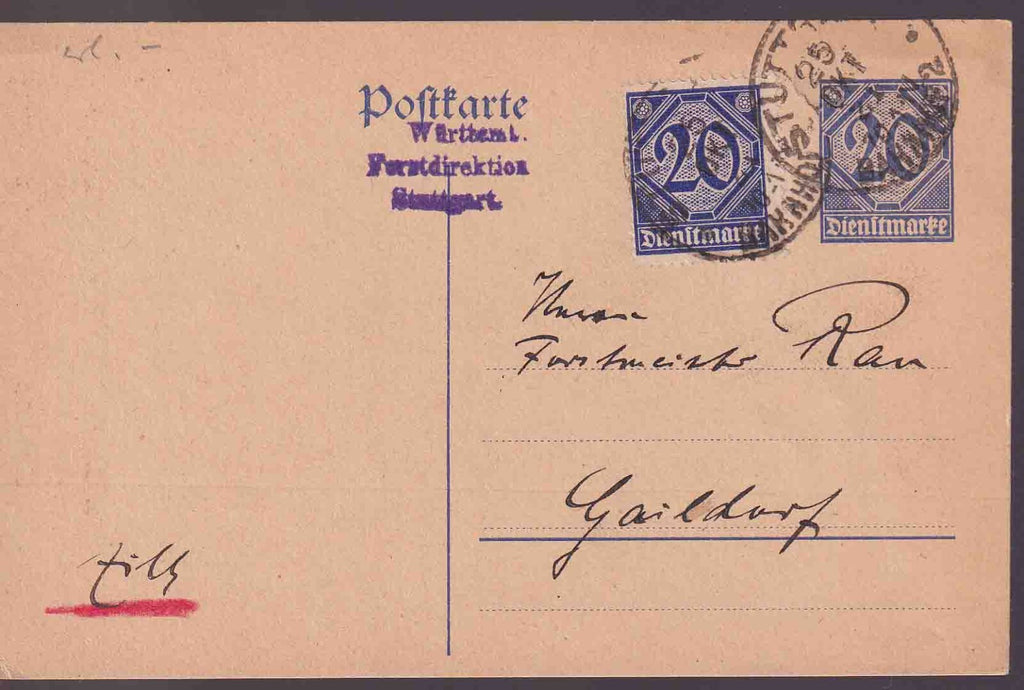 erl. –
Postkarte
Württemb.
Forstdirektion
Stuttgart.
20
Dienstmarke
20
Dienstmarke
STUTTG
25
OKT
BAHNHOF 2
Herrn
Forstmeister Rau
Gaildorf
Eilt